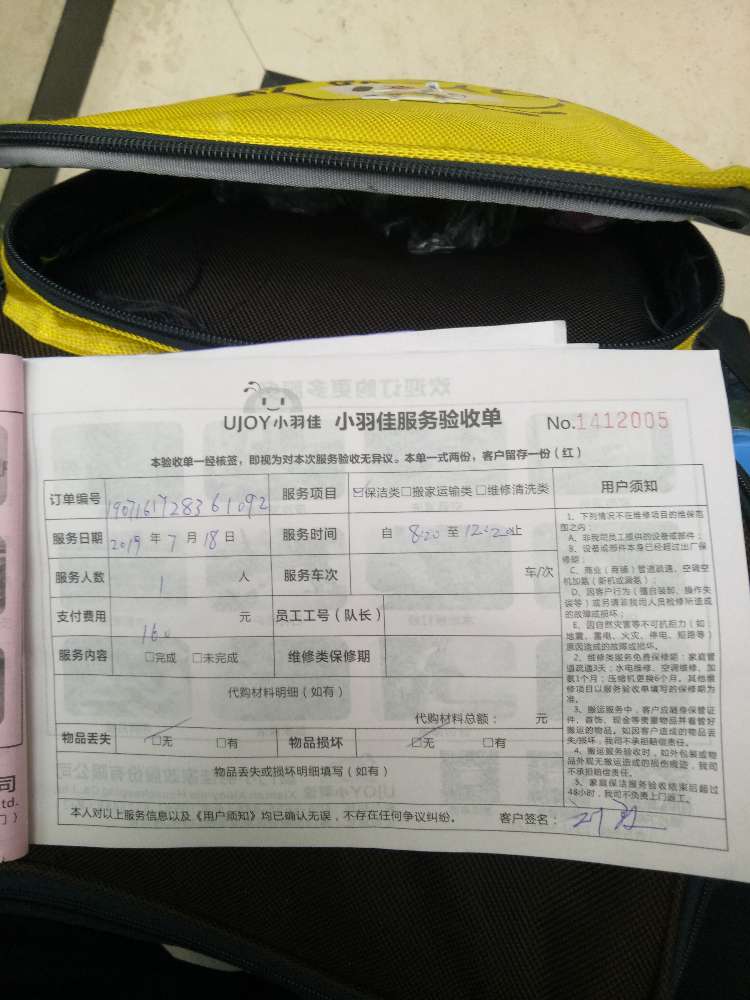 UJOY小羽佳 小羽佳服务验收单 No.1412005
本验收单一经核签，即视为对本次服务验收无异议。本单一式两份，客户留存一份（红）
订单编号 190716172836 1092 服务项目 ☑保洁类□搬家运输类□维修清洗类
服务日期 2019 年 7 月 18 日 服务时间 自 8:20 至 12:20止
服务人数 1 人 服务车次 车/次
支付费用 160 元 员工工号（队长）
服务内容 □完成 □未完成 维修类保修期
代购材料明细（如有）
代购材料总额： 元
物品丢失 □无 □有 物品损坏 □无 □有
物品丢失或损坏明细填写（如有）
本人对以上服务信息以及《用户须知》均已确认无误，不存在任何争议纠纷。 客户签名：
用户须知
1、下列情况不在维修项目的维保范
围之内：
A、非我司员工提供的设备或部件；
B、设备或部件本身已经超过出厂保
修期；
C、商业（商铺）管道疏通、空调空
机加氟（新机或漏氟）；
D、因客户行为（擅自装卸、操作失
误等）或另请非我司人员检修所造成
的故障或损坏；
E、因自然灾害等不可抗力（如：
地震、雷电、火灾、停电、短路等）
原因造成的故障或损坏。
2、维修类服务免费保修期：家庭管
道疏通3天；水电维修、空调维修、加
氨1个月；压缩机更换6个月。其他维
修项目以服务验收单填写的保修期为
准。
3、搬运服务中，客户应随身保管证
件、首饰、现金等贵重物品并看管好
搬运的物品。如因客户造成的物品丢
失/损坏，我司不承担赔偿责任。
4、搬运服务验收时，如外包装或物
品外观无搬运造成的损伤痕迹，我司
不承担赔偿责任。
5、家庭保洁服务验收结束后超过
48小时，我司不免费上门返工。
司
td.